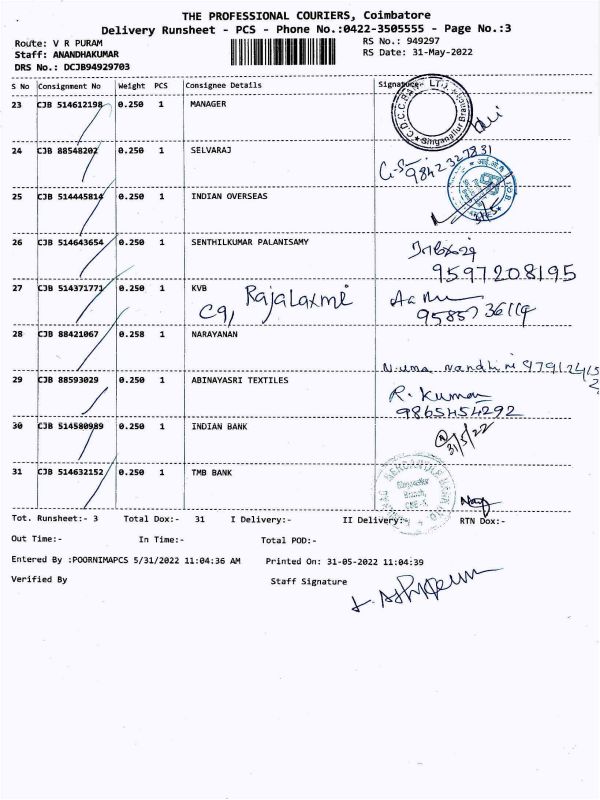 THE PROFESSIONAL COURIERS, Coimbatore
Delivery Runsheet - PCS - Phone No.:0422-3505555 - Page No.:3
Route: V R PURAM
RS No.: 949297
Staff: ANANDHAKUMAR
RS Date: 31-May-2022
DRS No.: DCJB94929703
S No Consignment No Weight PCS Consignee Details Signature
23 CJB 514612198 0.250 1 MANAGER
24 CJB 88548202 0.250 1 SELVARAJ
9842327831
25 CJB 514445814 0.250 1 INDIAN OVERSEAS
31/5
26 CJB 514643654 0.250 1 SENTHILKUMAR PALANISAMY
9597208195
27 CJB 514371771 0.250 1 KVB
C9, Rajalaxmi
28 CJB 88421067 0.258 1 NARAYANAN
29 CJB 88593029 0.250 1 ABINAYASRI TEXTILES
R. Kumar
9865454292
30 CJB 514580989 0.250 1 INDIAN BANK
31/5/22
31 CJB 514632152 0.250 1 TMB BANK
Tot. Runsheet:- 3 Total Dox:- 31 I Delivery:- II Delivery:- RTN Dox:-
Out Time:- In Time:- Total POD:-
Entered By :POORNIMAPCS 5/31/2022 11:04:36 AM Printed On: 31-05-2022 11:04:39
Verified By Staff Signature